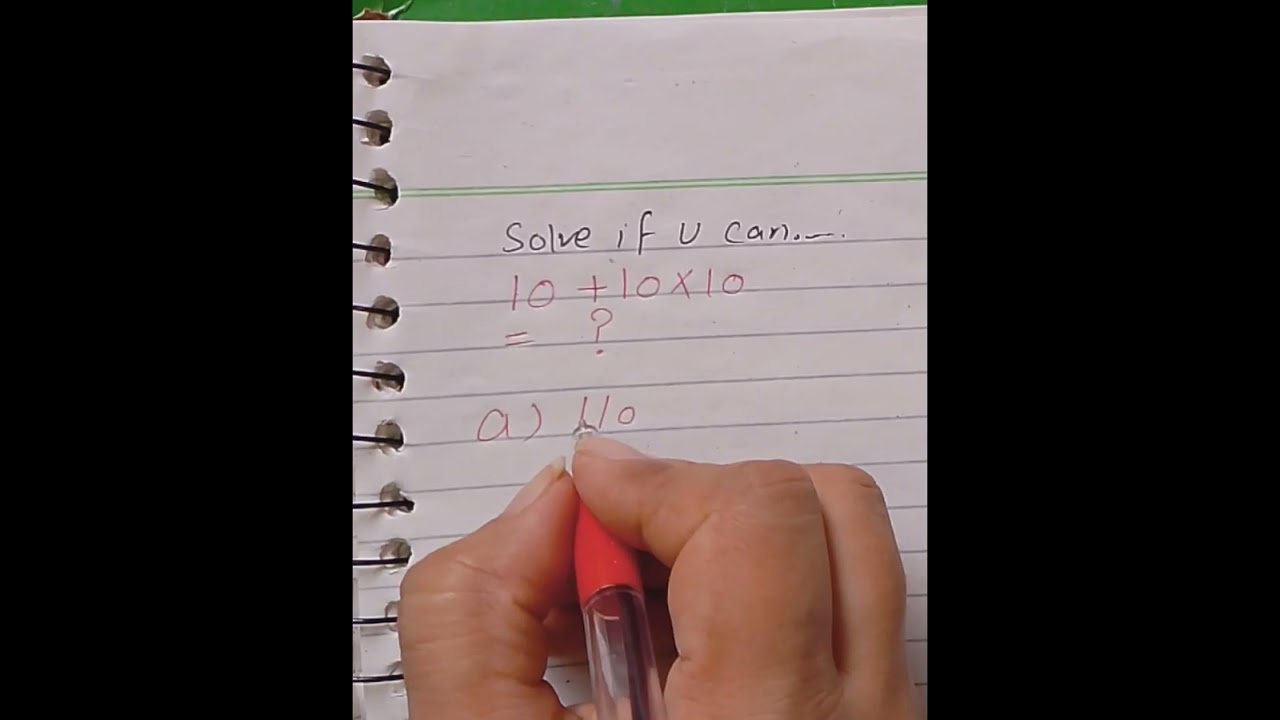 Solve if U can....
10 + 10 x 10
= ?
a) 110